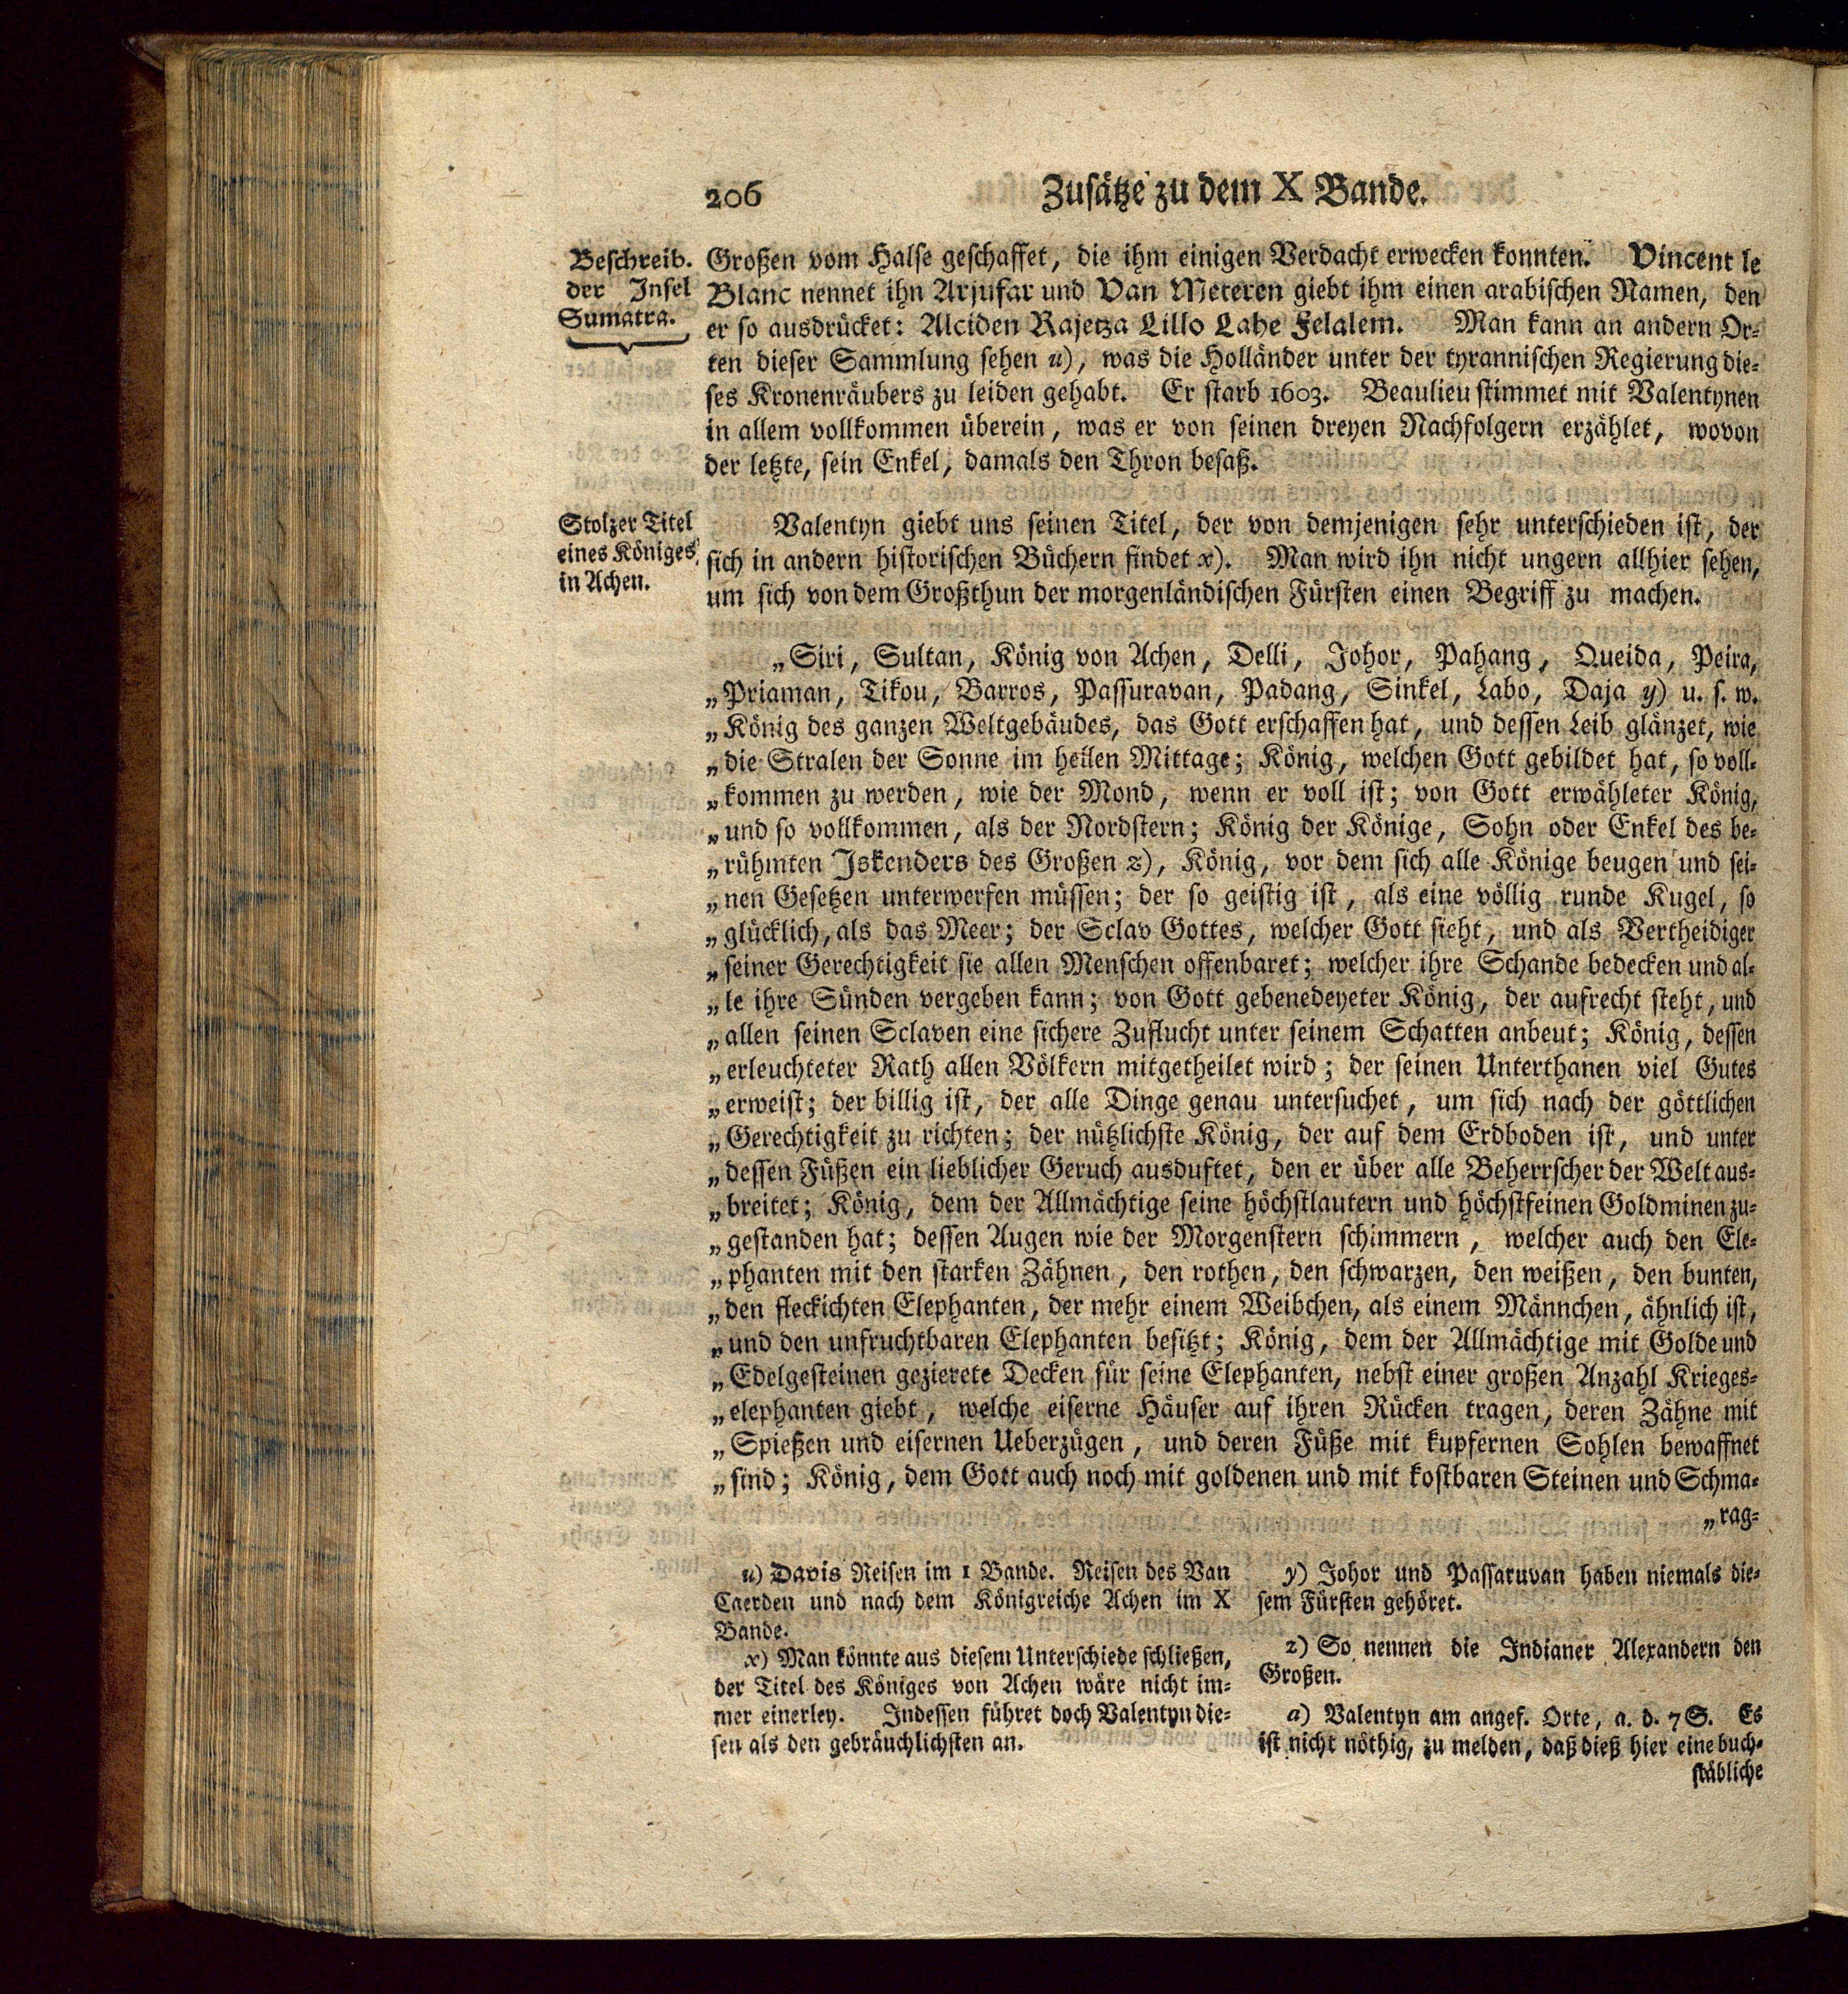 206
Zusätze zu dem X Bande.
Beschreib.
der Insel
Sumatra.
Großen vom Halse geschaffet, die ihm einigen Verdacht erwecken konnten. Vincent le
Blanc nennet ihn Arjufar und Van Meteren giebt ihm einen arabischen Namen, den
er so ausdrücket: Alciden Rajetza Lillo Lahe Felalem. Man kann an andern Or-
ten dieser Sammlung sehen u), was die Holländer unter der tyrannischen Regierung die-
ses Kronenräubers zu leiden gehabt. Er starb 1603. Beaulieu stimmet mit Valentynen
in allem vollkommen überein, was er von seinen dreyen Nachfolgern erzählet, wovon
der letzte, sein Enkel, damals den Thron besaß.
Stolzer Titel
eines Königes
in Achen.
Valentyn giebt uns seinen Titel, der von demjenigen sehr unterschieden ist, der
sich in andern historischen Büchern findet x). Man wird ihn nicht ungern allhier sehen,
um sich von dem Großthun der morgenländischen Fürsten einen Begriff zu machen.
„Siri, Sultan, König von Achen, Delli, Johor, Pahang, Queida, Peira,
„Priaman, Tikou, Barros, Passuravan, Padang, Sinkel, Labo, Daja y) u. s. w.
„König des ganzen Weltgebäudes, das Gott erschaffen hat, und dessen Leib glänzet, wie
„die Stralen der Sonne im hellen Mittage; König, welchen Gott gebildet hat, so voll-
„kommen zu werden, wie der Mond, wenn er voll ist; von Gott erwähleter König,
„und so vollkommen, als der Nordstern; König der Könige, Sohn oder Enkel des be-
„rühmten Iskenders des Großen z), König, vor dem sich alle Könige beugen und sei-
„nen Gesetzen unterwerfen müssen; der so geistig ist, als eine völlig runde Kugel, so
„glücklich, als das Meer; der Sclav Gottes, welcher Gott sieht, und als Vertheidiger
„seiner Gerechtigkeit sie allen Menschen offenbaret; welcher ihre Schande bedecken und al-
„le ihre Sünden vergeben kann; von Gott gebenedeyeter König, der aufrecht steht, und
„allen seinen Sclaven eine sichere Zuflucht unter seinem Schatten anbeut; König, dessen
„erleuchteter Rath allen Völkern mitgetheilet wird; der seinen Unterthanen viel Gutes
„erweist; der billig ist, der alle Dinge genau untersuchet, um sich nach der göttlichen
„Gerechtigkeit zu richten; der nützlichste König, der auf dem Erdboden ist, und unter
„dessen Füßen ein lieblicher Geruch ausduftet, den er über alle Beherrscher der Welt aus-
„breitet; König, dem der Allmächtige seine höchstlautern und höchstfeinen Goldminen zu-
„gestanden hat; dessen Augen wie der Morgenstern schimmern, welcher auch den Ele-
„phanten mit den starken Zähnen, den rothen, den schwarzen, den weißen, den bunten,
„den fleckichten Elephanten, der mehr einem Weibchen, als einem Männchen, ähnlich ist,
„und den unfruchtbaren Elephanten besitzt; König, dem der Allmächtige mit Golde und
„Edelgesteinen gezierete Decken für seine Elephanten, nebst einer großen Anzahl Krieges-
„elephanten giebt, welche eiserne Häuser auf ihren Rücken tragen, deren Zähne mit
„Spießen und eisernen Ueberzügen, und deren Füße mit kupfernen Sohlen bewaffnet
„sind; König, dem Gott auch noch mit goldenen und mit kostbaren Steinen und Schma-
„rag-
u) Davis Reisen im 1 Bande. Reisen des Van
Caerden und nach dem Königreiche Achen im X
Bande.
x) Man könnte aus diesem Unterschiede schließen,
der Titel des Königes von Achen wäre nicht im-
mer einerley. Indessen führet doch Valentyn die-
sen als den gebräuchlichsten an.
y) Johor und Passaruvan haben niemals die-
sem Fürsten gehöret.
z) So nennen die Indianer Alexandern den
Großen.
a) Valentyn am angef. Orte, a. d. 7 S. Es
ist nicht nöthig, zu melden, daß dieß hier eine buch-
stäbliche